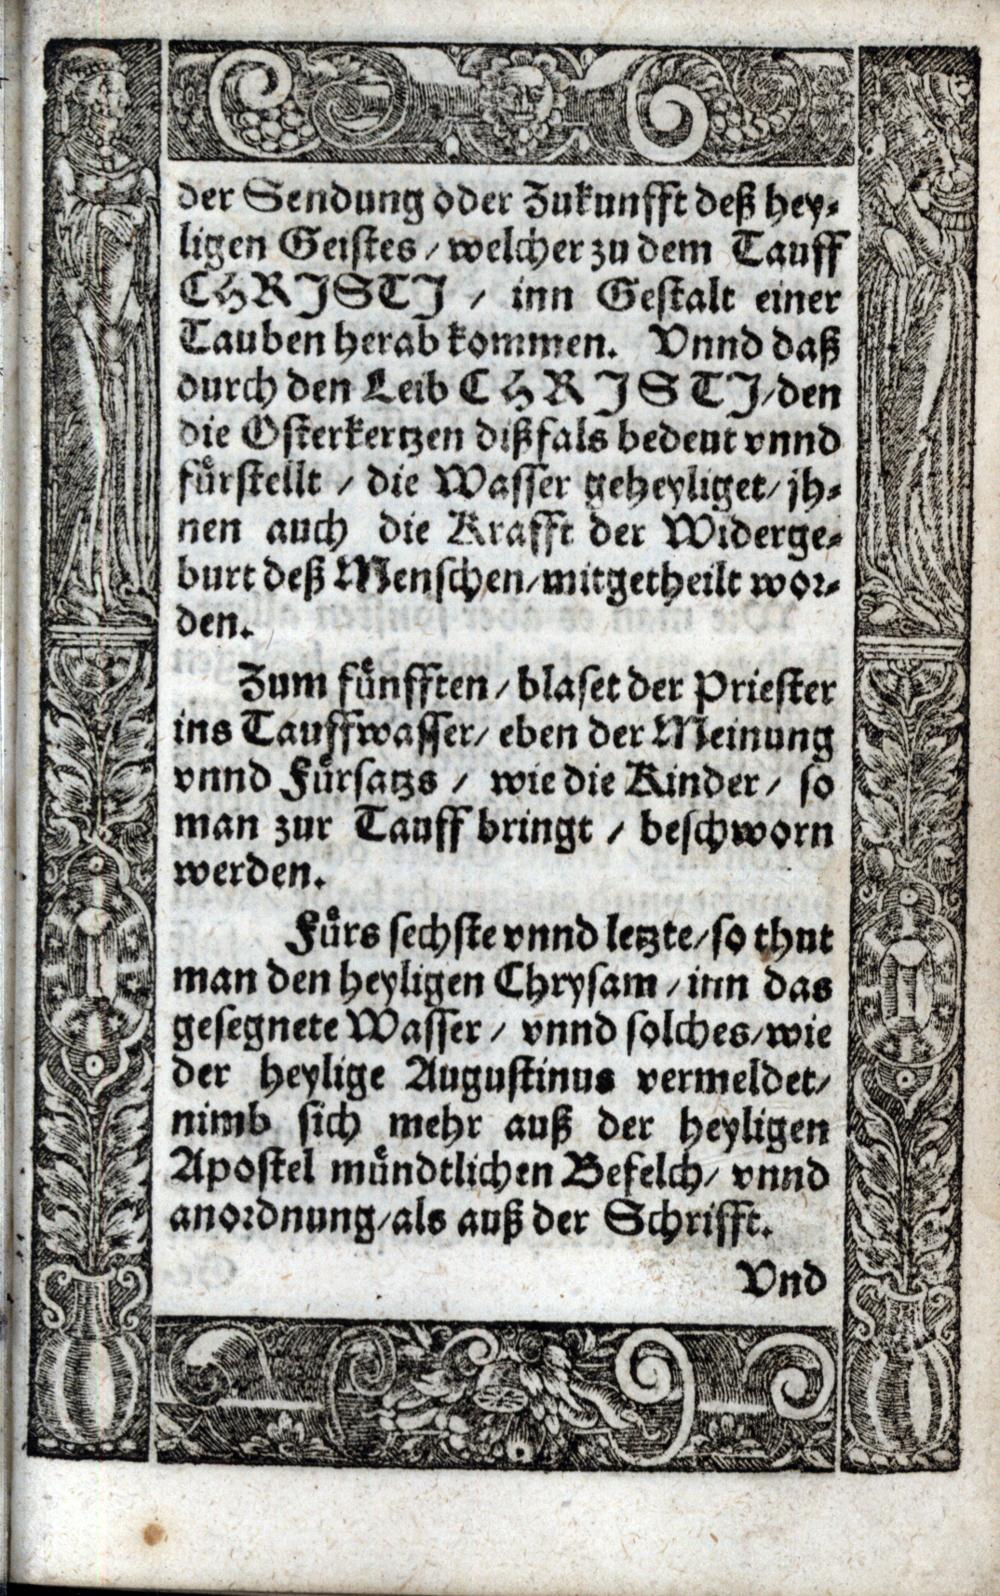 der Sendung oder Zukunfft deß hey-
ligen Geistes / welcher zu dem Tauff
CHRISTI / inn Gestalt einer
Tauben herab kommen. Vnnd daß
durch den Leib CHRISTI / den
die Osterkertzen dißfals bedeut vnnd
fuͤrstellt / die Wasser geheyliget / jh-
nen auch die Krafft der Widerge-
burt deß Menschen / mitgetheilt wor-
den.
Zum fuͤnfften / blaset der Priester
ins Tauffwasser / eben der Meinung
vnnd Fuͤrsatzs / wie die Kinder / so
man zur Tauff bringt / beschworn
werden.
Fuͤrs sechste vnnd letzte / so thut
man den heyligen Chrysam / inn das
gesegnete Wasser / vnnd solches / wie
der heylige Augustinus vermeldet /
nimb sich mehr auß der heyligen
Apostel muͤndtlichen Befelch / vnnd
anordnung / als auß der Schrifft.
Vnd